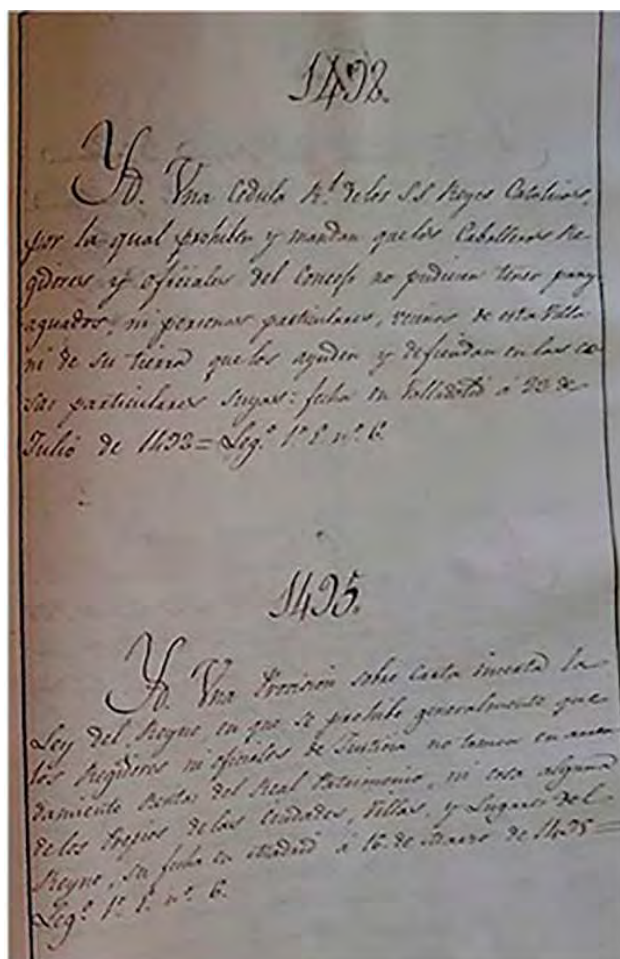 1492.
Yd. Una Cedula Rl. delos SS Reyes Catolicos,
por la qual prohiben y mandan quelos Caballeros Re
gidores y oficiales del Concejo no pudiesen tener pany
aguados, ni personas particulares, vecinos de esta Villa
ni de su tierra que los ayuden y defiendan en las co
sas particulares suyas: fecha en Valladolid á 22 de
Julio de 1492= Leg.º 1º nº. 6.
1495.
Yd. Una Provision sobre Carta inserta la
Ley del Reyno en que se prohibe generalmente que
los Regidores ni oficiales de Justicia no tomen en arren
damiento Rentas del Real Patrimonio, ni cosa alguna
delos Propios delas Ciudades, Villas, y Lugares del
Reyno, su fecha en Madrid á 16 de Marzo de 1495=
Leg.º 1º nº. 6.